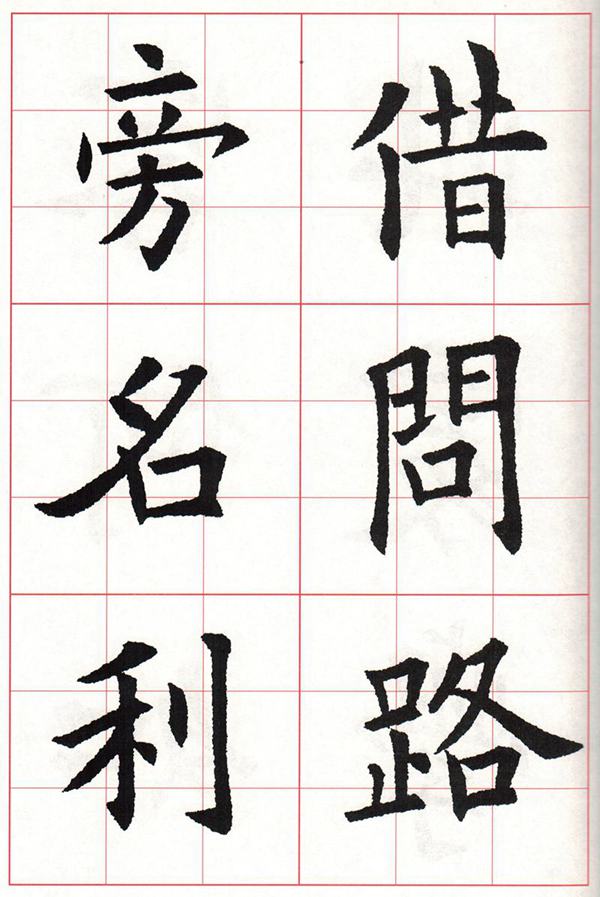 借問路
旁名利